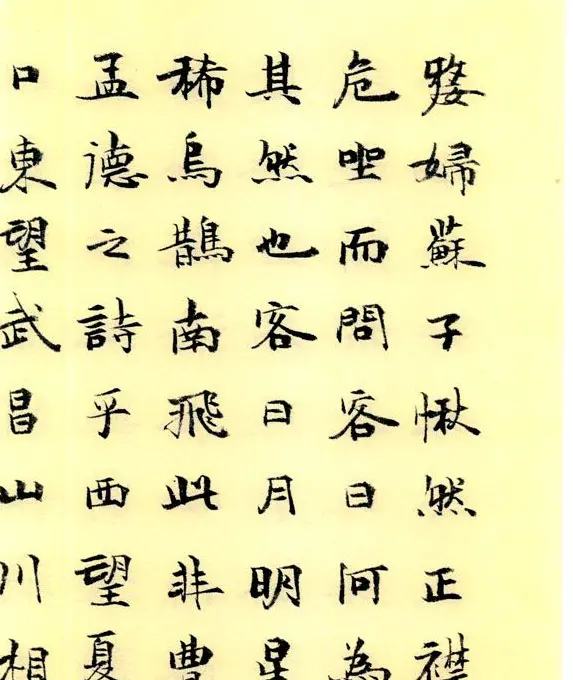 嫠婦蘇子愀然正襟
危坐而問客曰何為
其然也客曰月明星
稀烏鵲南飛此非曹
孟德之詩乎西望夏
口東望武昌山川相